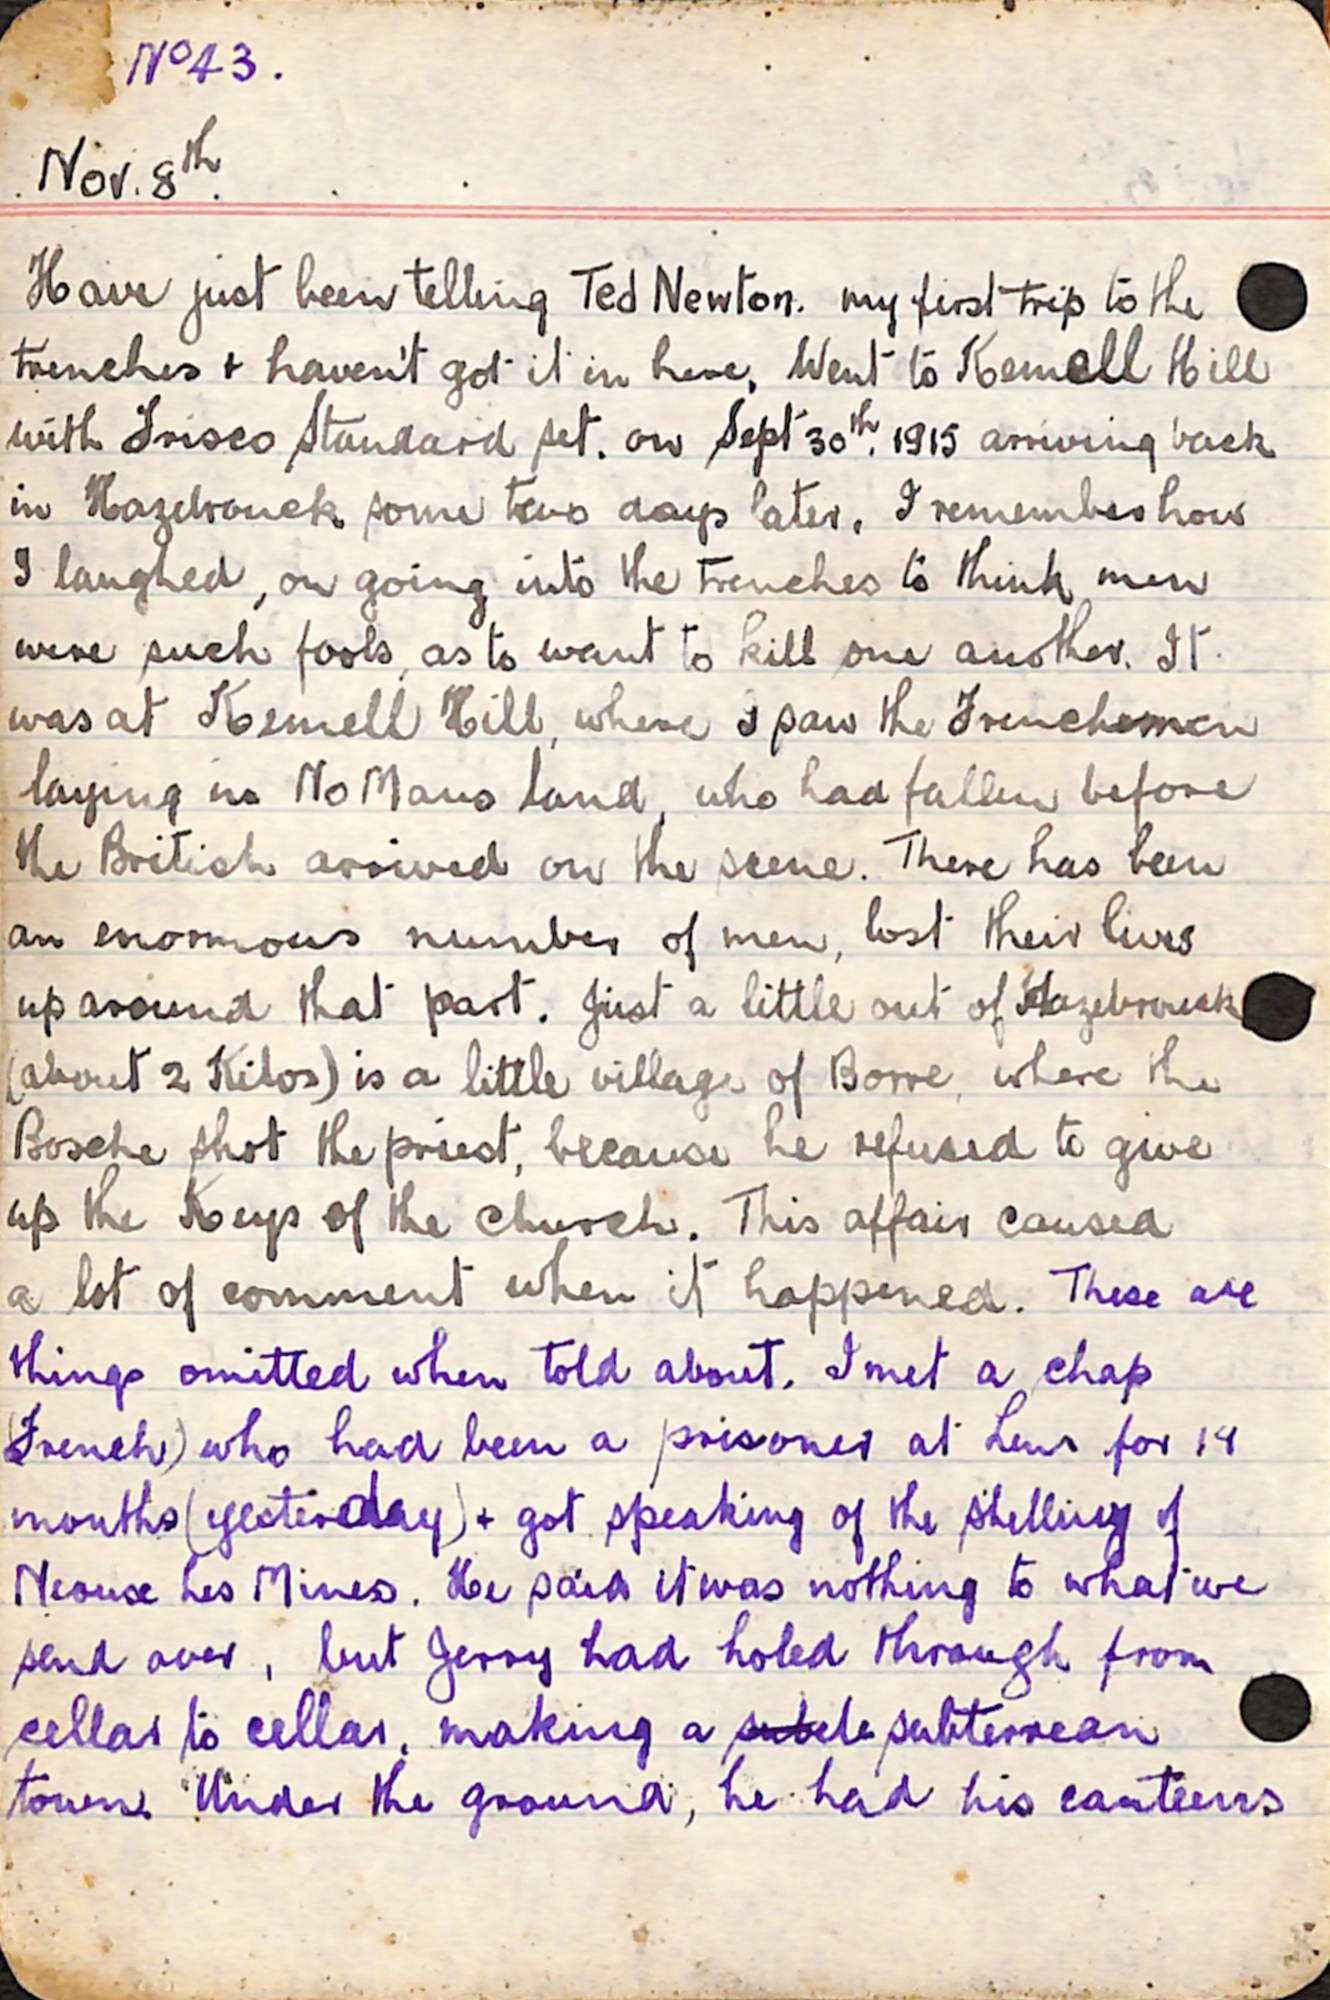 No 43.
Nov. 8th.
Have just been telling Ted Newton. my first trip to the
trenches + haven't got it in here. Went to Kemell Hill
with Frisco Standard set. on Sept 30th. 1915 arriving back
in Hazebrouck some two days later. I remember how
I laughed, on going into the trenches to think men
were such fools, as to want to kill one another. It
was at Kemell Hill, where I saw the Frenchemen
laying in No Mans land, who had fallen before
the British arrived on the scene. There has been
an enormous number of men, lost their lives
up around that part. Just a little out of Hazebrouck
(about 2 Kilos) is a little village of Borre, where the
Bosche shot the priest, because he refused to give
up the Keys of the church. This affair caused
a lot of comment when it happened. These are
things omitted when told about. I met a chap
(French) who had been a prisoner at Lens for 18
months (yesterday) + got speaking of the shelling of
Neoux les Mines. He said it was nothing to what we
send over, but Jerry had holed through from
cellar to cellar, making a subterrean
town. Under the ground, he had his canteens